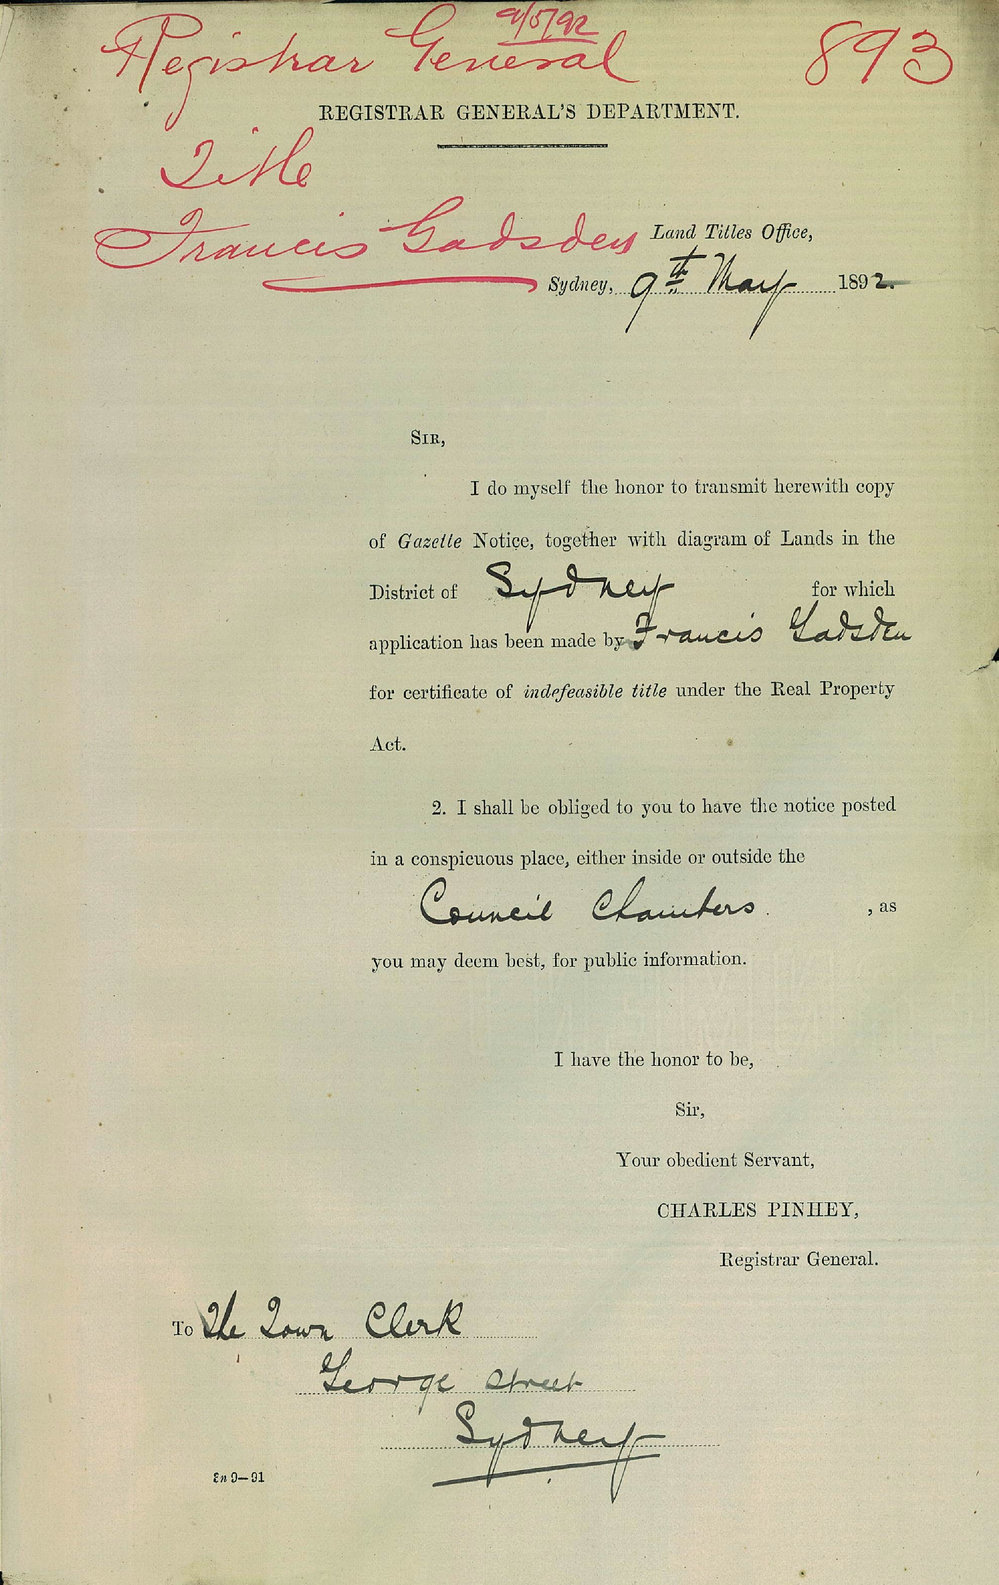 9/5/92
Registrar General 893
REGISTRAR GENERAL'S DEPARTMENT.
Title
Francis Gadsden
Land Titles Office,
Sydney, 9th May 1892.
SIR,
I do myself the honor to transmit herewith copy
of Gazette Notice, together with diagram of Lands in the
District of Sydney for which
application has been made by Francis Gadsden
for certificate of indefeasible title under the Real Property
Act.
2. I shall be obliged to you to have the notice posted
in a conspicuous place, either inside or outside the
Council Chambers. , as
you may deem best, for public information.
I have the honor to be,
Sir,
Your obedient Servant,
CHARLES PINHEY,
Registrar General.
To The Town Clerk
George street
Sydney
En 9—91